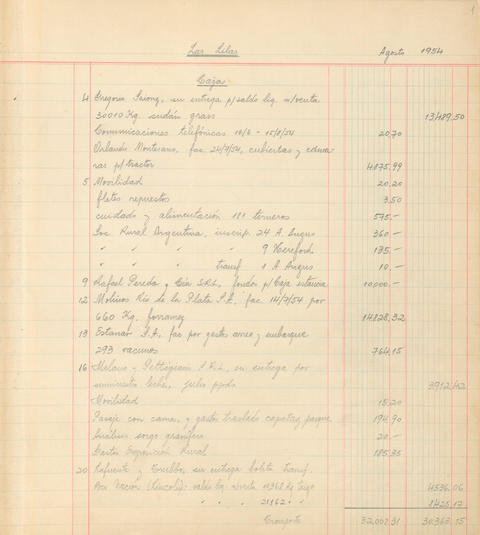 1
Las Lilas Agosto 1954
Caja
4 Gregorio su entrega p/saldo liq. n/venta
30010 Kg. sudán grass 13489.50
Comunicaciones telefónicas 16/6 - 15/8/54 20.70
Orlando fac. 24/7/54, cubiertas y
p/tractor 4875.99
5 Movilidad 20.20
fletes repuestos 3.50
cuidado y alimentación 181 terneros 575.-
Soc. Rural Argentina, inscrip. 24 A. Angus 360.-
" " " " 9 Hereford 135.-
transf. 1 A. Angus 10.-
9 Rafael Pereda y Cía S.R.L., fondo p/Caja estancia 10,000.-
12 Molinos Río de la Plata S.A., fac. 14/7/54 por
660 Kg. 14828.32
13 Estanar S.A, fac por gastos arreo y embarque
293 vacunos 764.15
16 y Pettigiani S.R.L., su entrega por
suministro leche, julio ppdo 3912.42
Movilidad 15.20
Pasaje con cama, y gastos traslado capataz parque 194.90
Análisis sorgo granífero 20.-
Gastos Exposición Rural 185.35
20 Lafuente y su entrega
Nación saldo liq. venta de trigo 4536.06
" " " 21162 " " 1425.17
Transporte 32,007.31 30,363.15